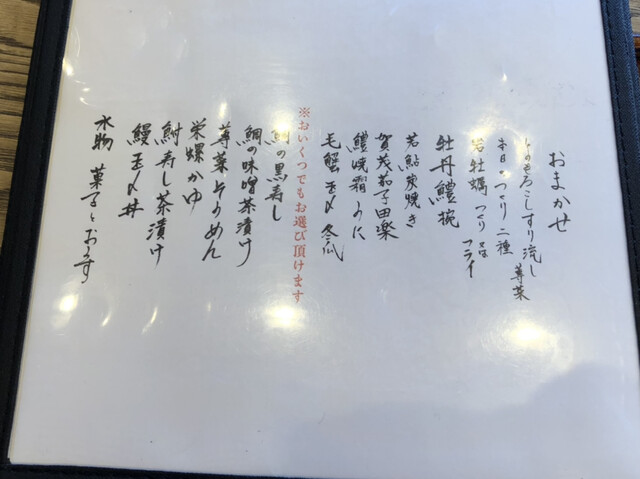 おまかせ
とうもろこしすり流し 蓴菜
本日のつくり 二種
岩牡蠣 つくり 又は フライ
牡丹鱧椀
若鮎炭焼き
賀茂茄子田楽
鱧焼霜 うに
毛蟹玉〆 冬瓜
※おいくつでもお選び頂けます
鯛の黒寿し
鯛味噌茶漬け
蓴菜そうめん
栄螺かゆ
鮒寿し茶漬け
鰻玉〆丼
水物 菓子と